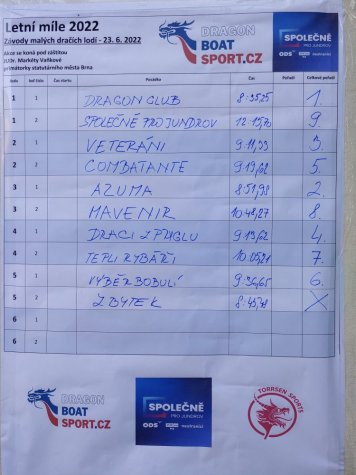 Letní míle 2022
Závody malých dračích lodí - 23. 6. 2022
Akce se koná pod záštitou
JUDr. Markéty Vaňkové
primátorky statutárního města Brna
DRAGON
BOAT
SPORT.CZ
SPOLEČNĚ
PRO JUNDROV
ODS
Posádka Čas Pořadí Celkové pořadí
1 1 DRAGON CLUB 8:35,25 1.
1 2 SPOLEČNĚ PRO JUNDROV 9.
2 1 VETERÁNI 9:11,33 3.
2 2 COMBATANTE 9:19,62 5.
3 1 AZUMA 8:51,98 2.
3 2 MAVENIR 10:48,27 8.
4 1 DRACI Z PRGLU 9:13,62 4.
4 2 TEPLI RYBÁŘI 10:05,21 7.
5 1 VÝBĚR BOBULÍ 9:36,65 6.
5 2 ZBYTEK X
6 1
6 2
DRAGON
BOAT
SPORT.CZ
SPOLEČNĚ
PRO JUNDROV
ODS
TORRSEN SPORTS